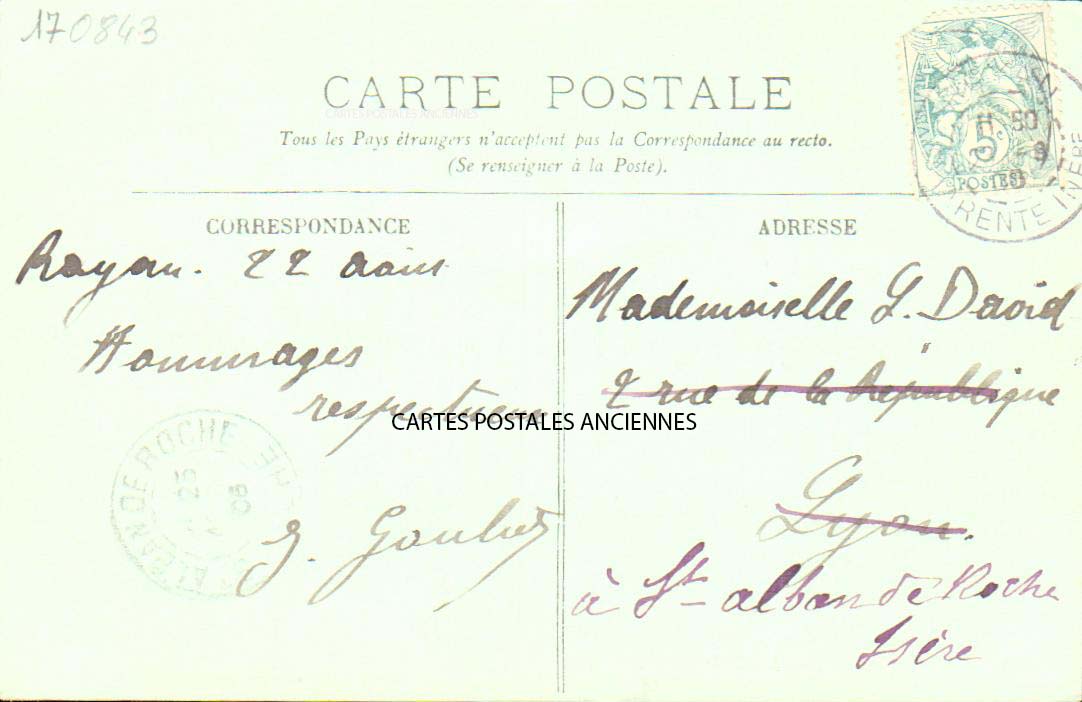 170843
CARTE POSTALE
CARTES POSTALES ANCIENNES
Tous les Pays étrangers n'acceptent pas la Correspondance au recto.
(Se renseigner à la Poste).
5c
POSTES
RENTE INFRE
CORRESPONDANCE
Royan. 22 août
Hommages
respectueux
CARTES POSTALES ANCIENNES
ALBAN DE ROCHE
25
06
ADRESSE
Mademoiselle L. David
2 rue de la République
Lyon.
à St- alban de Roche
Isère